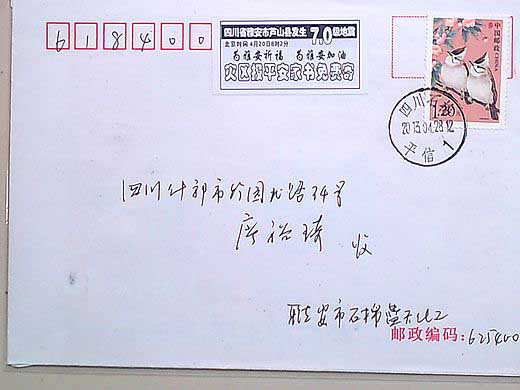 618400
四川省雅安市芦山县发生7.0级地震
北京时间4月20日8时2分
为雅安祈福 为雅安加油
灾区报平安家书免费寄
中国邮政
CHINA
1.20
四川石棉
2013.04.28.12
平信 1
四川什邡市
收
雅安市石棉
邮政编码:625400